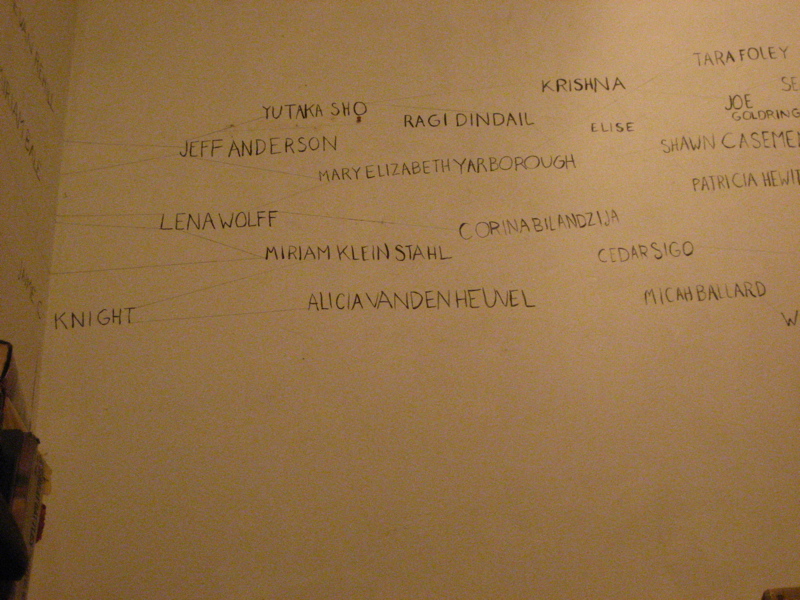 TARA FOLEY
KRISHNA
SE
JOE
GOLDRING
YUTAKA SHO
RAGI DINDAIL
ELISE
JEFF ANDERSON
SHAWN CASEMEN
MARY ELIZABETH YARBOROUGH
PATRICIA HEWIT
LENA WOLFF
CORINA BILANDZIJA
MIRIAM KLEIN STAHL
CEDAR SIGO
ALICIA VANDEN HEUVEL
MICAH BALLARD
KNIGHT
W